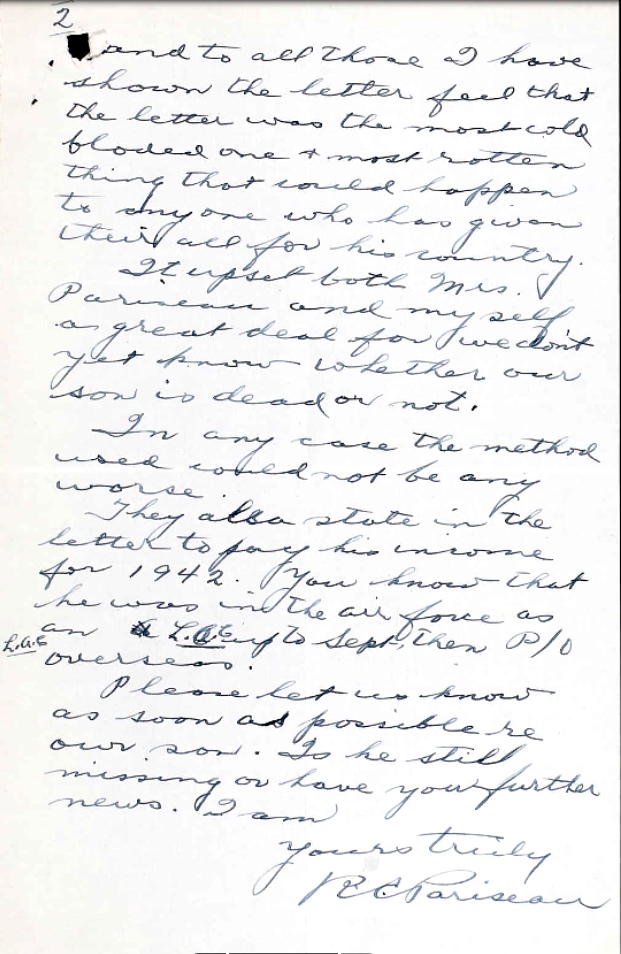 2
and to all those I have
shown the letter feel that
the letter was the most cold
bloded one + most rotten
thing that could happen
to anyone who has given
their all for his country.
It upset both Mrs.
Pariseau and my self
a great deal for we don't
yet know whether our
son is dead or not.
In any case the method
used could not be any
worse.
They also state in the
letter to pay his income
for 1942. You know that
he was in the air force as
an L.A.C up to Sept, then P/O
L.A.C
overseas.
Please let us know
as soon as possible re
our son. Is he still
missing or have you further
news. I am
Yours truly
R C Pariseau